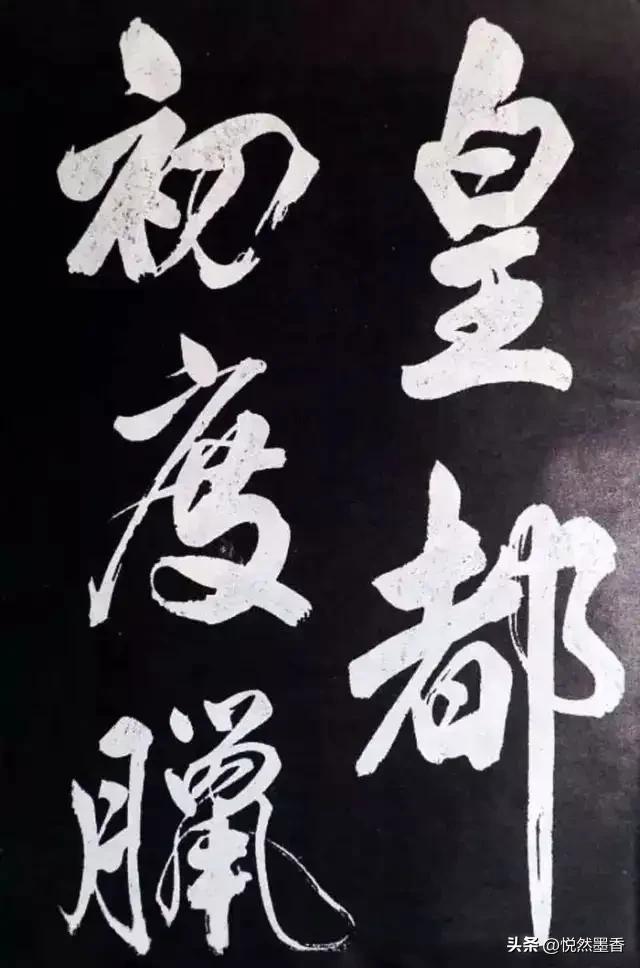 皇都
初度臘
头条 @悦然墨香